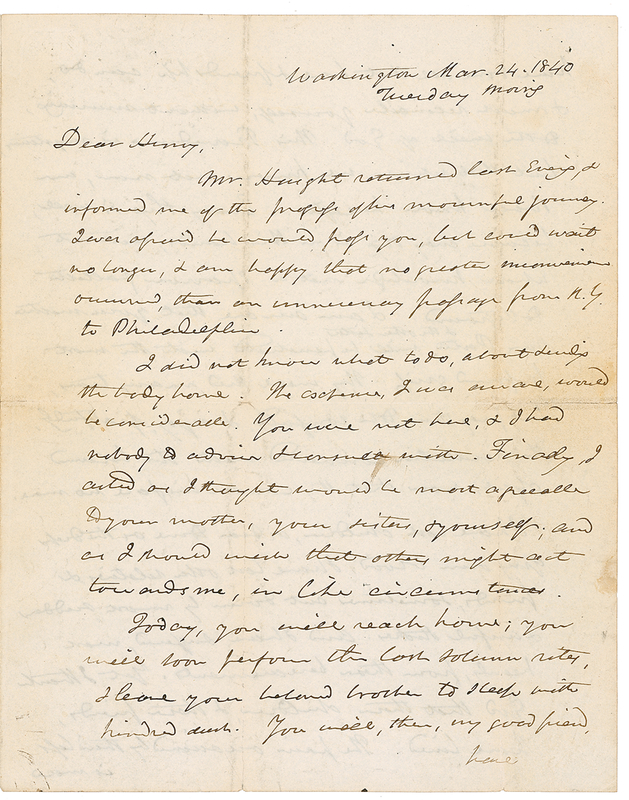 Washington Mar. 24. 1840
Tuesday Morng
Dear Henry,
Mr. Haight returned last Eveng &
informed me of the progress of his mournful journey.
I was afraid he would pass you, but could wait
no longer, & am happy that no greater inconvenience
occurred, than an unnecessary passage from N.Y.
to Philadelphia.
I did not know what to do, about sendg
the body home. The expense, I was aware, would
be considerable. You were not here, & I had
nobody to advise & consult with. Finally, I
acted as I thought would be most agreeable
to your mother, your sisters, & yourself; and
as I should wish that others might act
towards me, in like circumstances.
Today, you will reach home; you
will soon perform the last solemn rites,
& leave your beloved brother to sleep with
kindred dust. You will, then, my good friend,
have